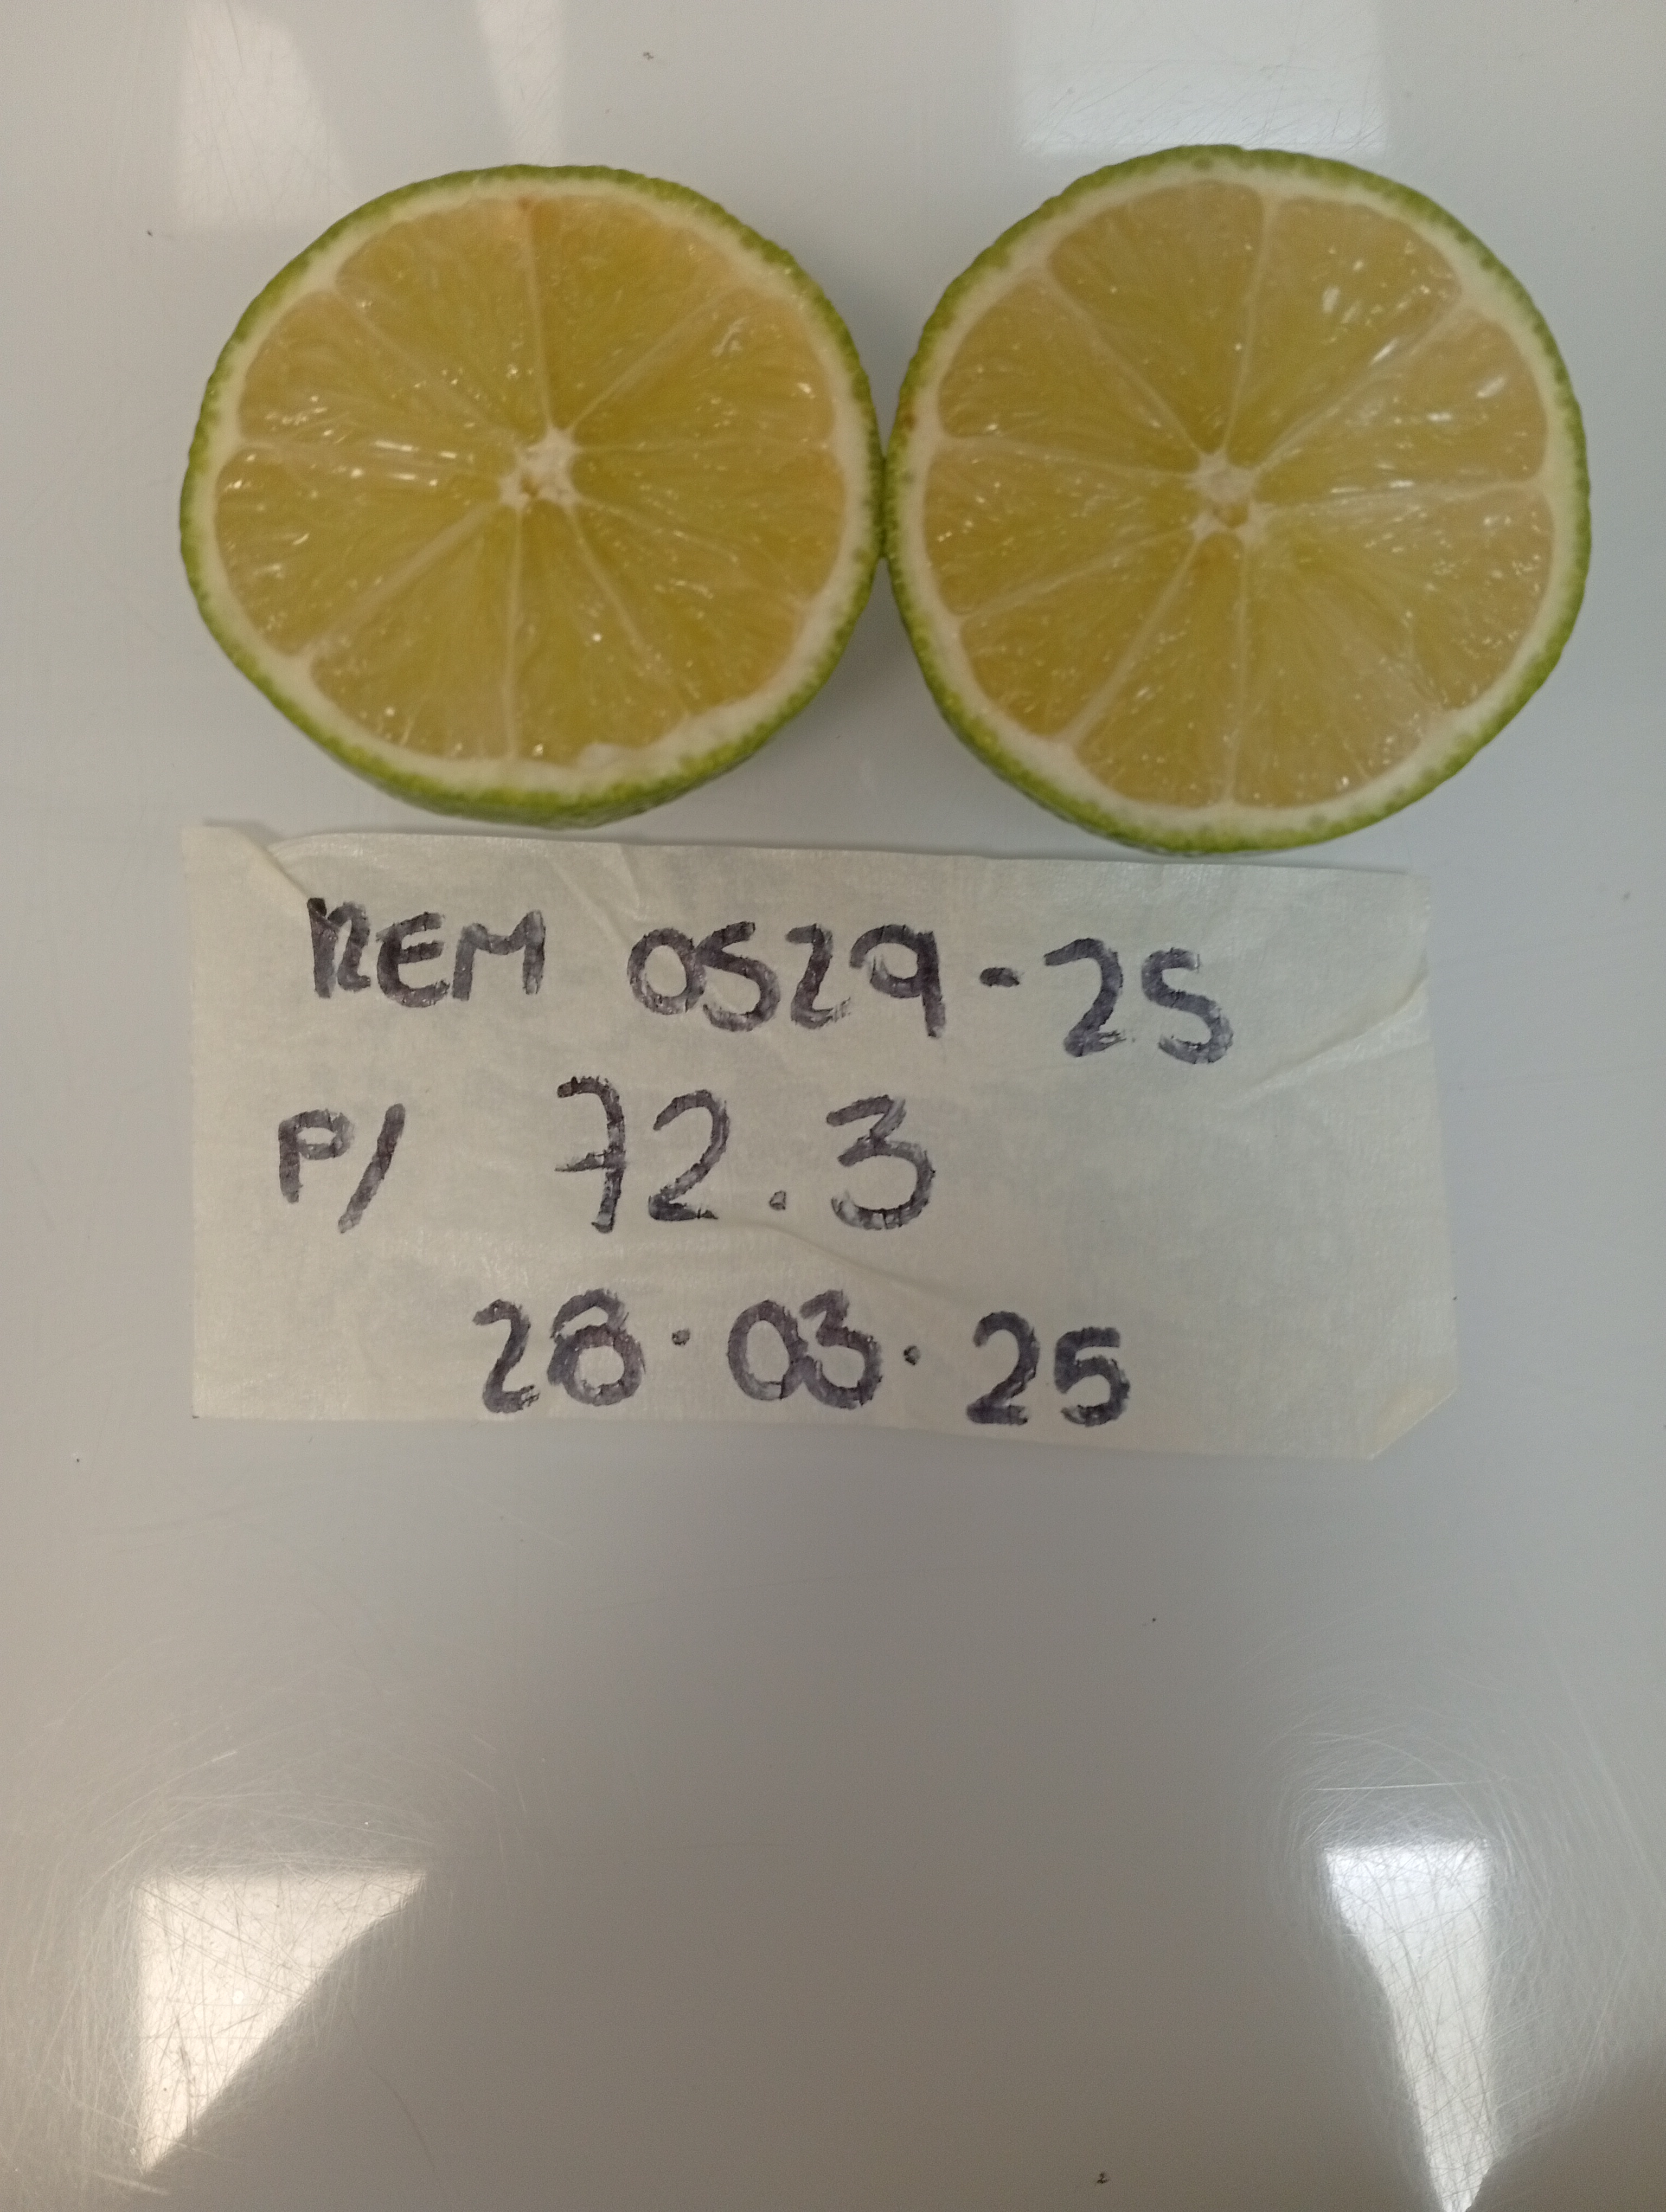 REM 0529-25
P/ 72.3
28.03.25